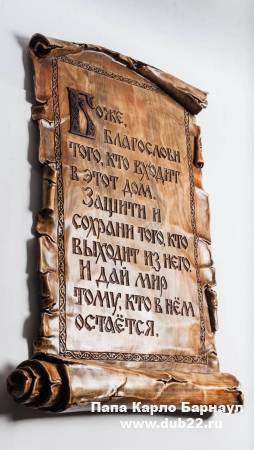 Боже,
благослови
того, кто входит
в этот дом.
Защити и
сохрани того, кто
выходит из него.
И дай мир
тому, кто в нём
остаётся.
Папа Карло Барнаул
www.dub22.ru